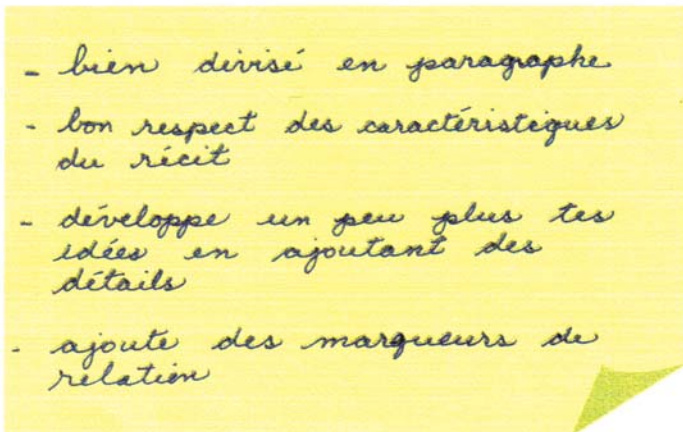 - bien divisé en paragraphe
- bon respect des caractéristiques
du récit
- développe un peu plus tes
idées en ajoutant des
détails
- ajoute des marqueurs de
relation